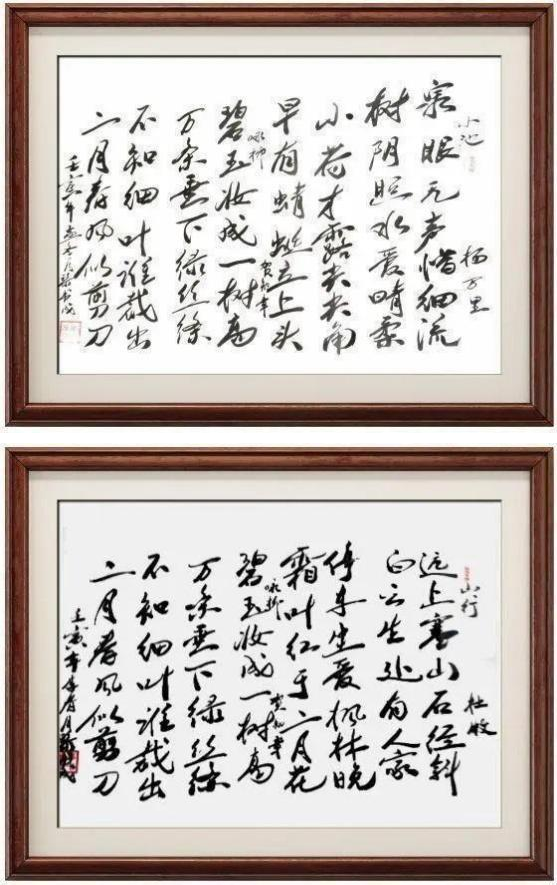 小池 杨万里
泉眼无声惜细流
树阴照水爱晴柔
小荷才露尖尖角
早有蜻蜓立上头
咏柳 贺知章
碧玉妆成一树高
万条垂下绿丝绦
不知细叶谁裁出
二月春风似剪刀
壬寅年
山行 杜牧
远上寒山石径斜
白云生处有人家
停车坐爱枫林晚
霜叶红于二月花
咏柳 贺知章
碧玉妆成一树高
万条垂下绿丝绦
不知细叶谁裁出
二月春风似剪刀
壬寅年